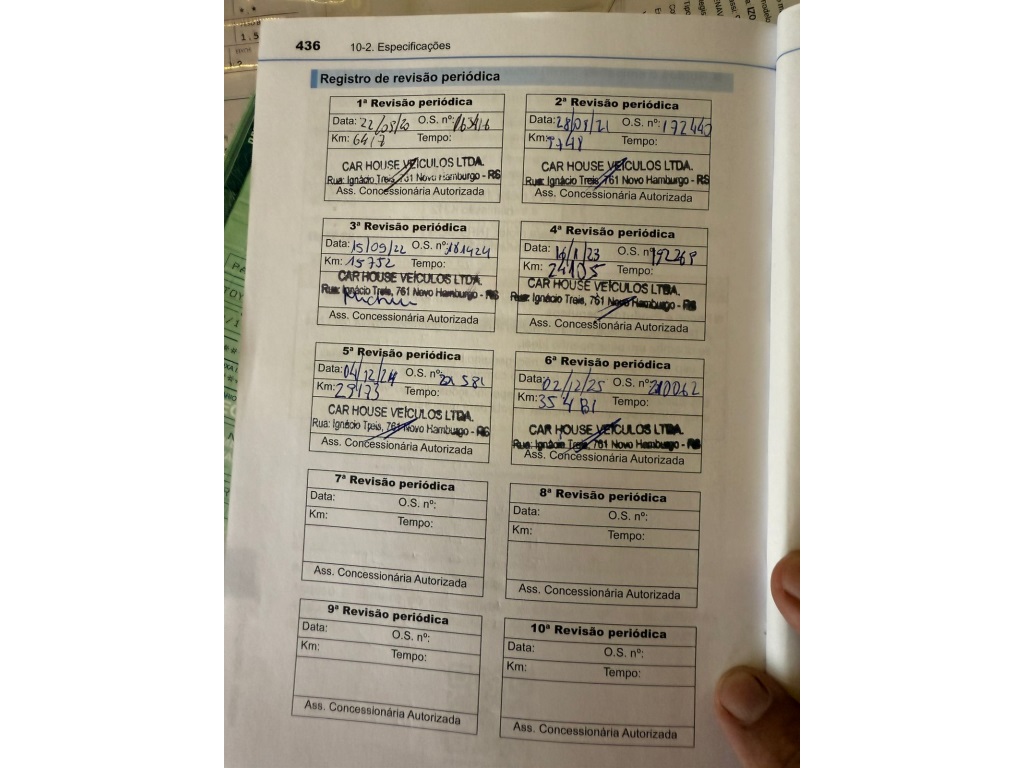 436 10-2. Especificações
Registro de revisão periódica
1ª Revisão periódica
Data: 22/09/20 O.S. nº:
Km: 6417 Tempo:
CAR HOUSE VEÍCULOS LTDA.
Rua: Ignácio Treis, 761 Novo Hamburgo - RS
Ass. Concessionária Autorizada
2ª Revisão periódica
Data: 28/09/21 O.S. nº: 172440
Km: Tempo:
CAR HOUSE VEÍCULOS LTDA.
Rua: Ignácio Treis, 761 Novo Hamburgo - RS
Ass. Concessionária Autorizada
3ª Revisão periódica
Data: 15/09/22 O.S. nº: 181424
Km: 15752 Tempo:
CAR HOUSE VEÍCULOS LTDA.
Rua: Ignácio Treis, 761 Novo Hamburgo - RS
Ass. Concessionária Autorizada
4ª Revisão periódica
Data: O.S. nº 192269
Km: 24105 Tempo:
CAR HOUSE VEÍCULOS LTDA.
Rua: Ignácio Treis, 761 Novo Hamburgo - RS
Ass. Concessionária Autorizada
5ª Revisão periódica
Data: 04/12/24 O.S. nº:
Km: 29173 Tempo:
CAR HOUSE VEÍCULOS LTDA.
Rua: Ignácio Treis, 761 Novo Hamburgo - RS
Ass. Concessionária Autorizada
6ª Revisão periódica
Data: 02/12/25 O.S. nº: 210062
Km: 35481 Tempo:
CAR HOUSE VEÍCULOS LTDA.
Rua: Ignácio Treis, 761 Novo Hamburgo - RS
Ass. Concessionária Autorizada
7ª Revisão periódica
Data: O.S. nº:
Km: Tempo:
Ass. Concessionária Autorizada
8ª Revisão periódica
Data: O.S. nº:
Km: Tempo:
Ass. Concessionária Autorizada
9ª Revisão periódica
Data: O.S. nº:
Km: Tempo:
Ass. Concessionária Autorizada
10ª Revisão periódica
Data: O.S. nº:
Km: Tempo:
Ass. Concessionária Autorizada